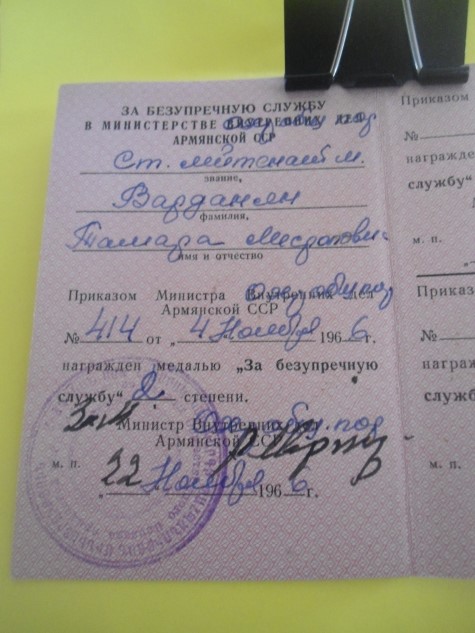 ЗА БЕЗУПРЕЧНУЮ СЛУЖБУ
В МИНИСТЕРСТВЕ ВНУТРЕННИХ ДЕЛ
АРМЯНСКОЙ ССР
Ст. лейтенант м.
звание,
Варданян
фамилия,
Тамара
имя и отчество
Приказом Министра Внутренних Дел
Армянской ССР
№ 414 от „4 Ноября 1966 г.
награжден медалью „За безупречную
службу“ 2 степени.
Зам Министр Внутренних Дел
Армянской ССР
м. п.
„22 Ноября 1966 г.
Приказом
№
награжден
службу“
м. п.
Приказ
№
награж
служб
м. п.